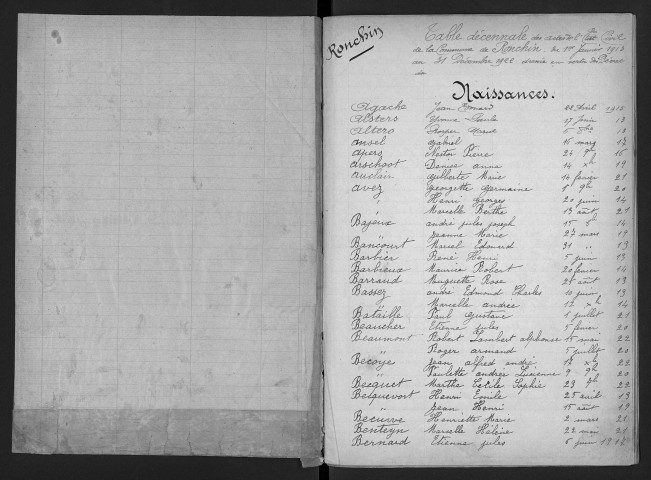 Ronchin
Table décennale des actes de l'Etat Civil
de la Commune de Ronchin, du 1er Janvier 1913
au 31 Décembre 1922
Naissances.
Agache Jean Edouard 22 avril 1915
Alsters Yvonne 17 juin 13
Altero 18
Ansel Gabriel 16 mars 17
Apers Nestor Pierre 24 9b 15
Arschoot Denise Anna 14 Xb 19
Auclair Gilberte Marie 14 février 21
Avez Georgette Germaine 1er 9b 20
" Henri Georges 20 juin 14
" Marcelle Berthe 13 août 21
Bajeux André Jules Joseph 14
" Jeanne Marie 27 mars
Bancourt Marcel Edmond 31 " 13
Barbier René Henri 5 juin
Barbieux Maurice Robert 20 février 14
Barrand Muguette Rose 28 août 13
Bassez André Edmond Charles 4 juin 13
" Marcelle Andrée 12 Xb 14
Bataille Paul Gustave 1 juillet 21
Beaucher Etienne Jules 5 février 20
Beaumont Robert Lambert Alphonse 15 mai 22
" Roger Armand 5 juillet 20
Becoye Jean Alfred André 22
" Paulette Andrée Lucienne 9 9b 20
Becquet Marthe Cécile Sophie 23 22
Becquevort Henri Emile 25 avril 13
" Jean Henri 15 août 19
Becuwe Henriette Marie 2 mars 21
Benteyn Marcelle Hélène 22 mai 21
Bernard Etienne Jules 6 juin 1917